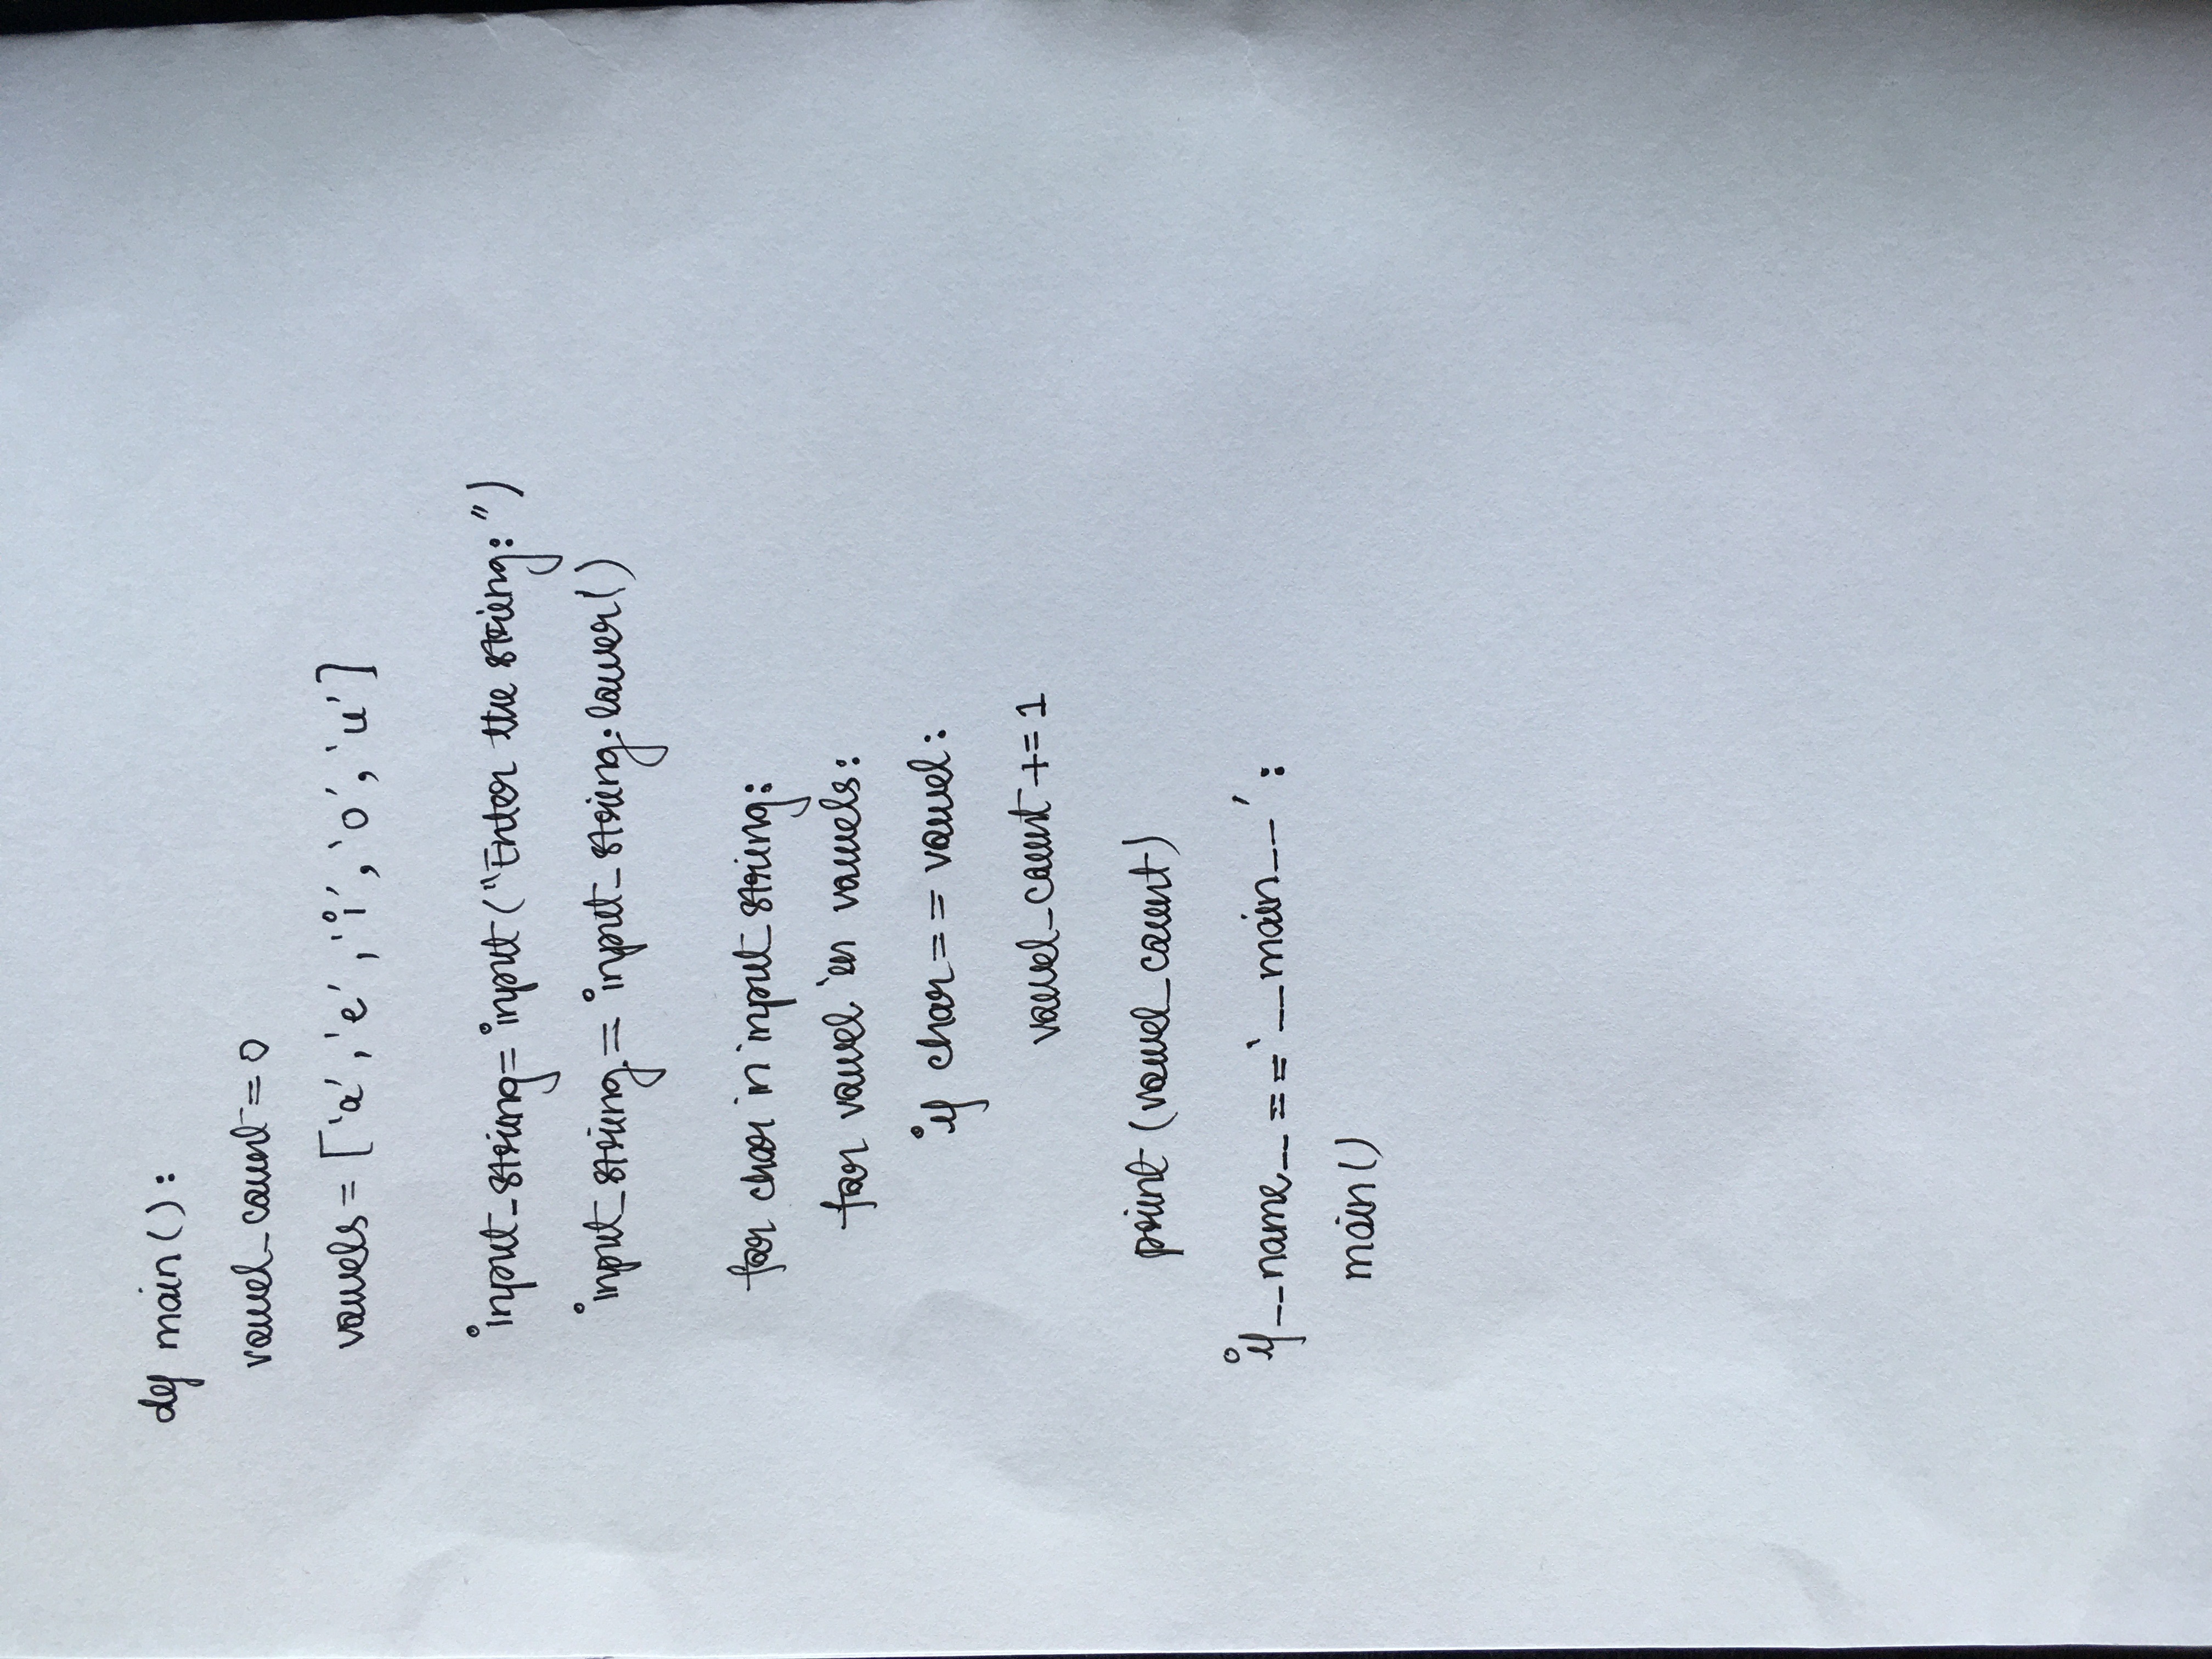 def main():
vowel_count = 0
vowels = ['a', 'e', 'i', 'o', 'u']
input_string = input("Enter the string: ")
input_string = input_string.lower()
for char in input_string:
for vowel in vowels:
if char == vowel:
vowel_count += 1
print (vowel_count)
if __name__ == '__main__':
main()